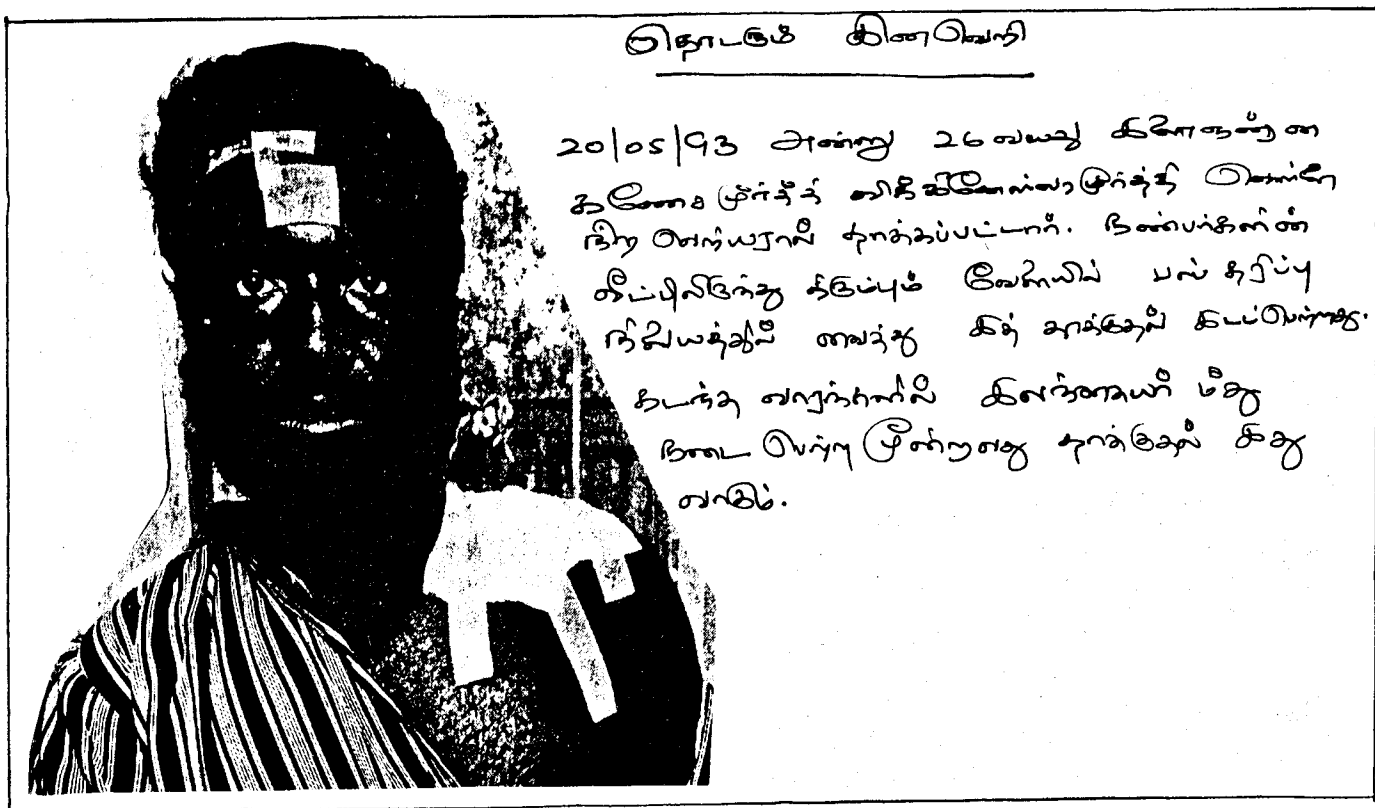 தொடரும் இனவெறி
20/05/93 அன்று 26 வயது இளைஞன்
கணேசமூர்த்தி விக்கினேஸ்வரமூர்த்தி வெள்ளை
நிற வெறியரால் தாக்கப்பட்டார். நண்பர்களின்
வீட்டிலிருந்து திரும்பும் வேளையில் பஸ் தரிப்பு
நிலையத்தில் வைத்து இத் தாக்குதல் இடம்பெற்றது.
கடந்த வாரங்களில் இலங்கையர் மீது
நடை பெற்ற மூன்றாவது தாக்குதல் இது
வாகும்.